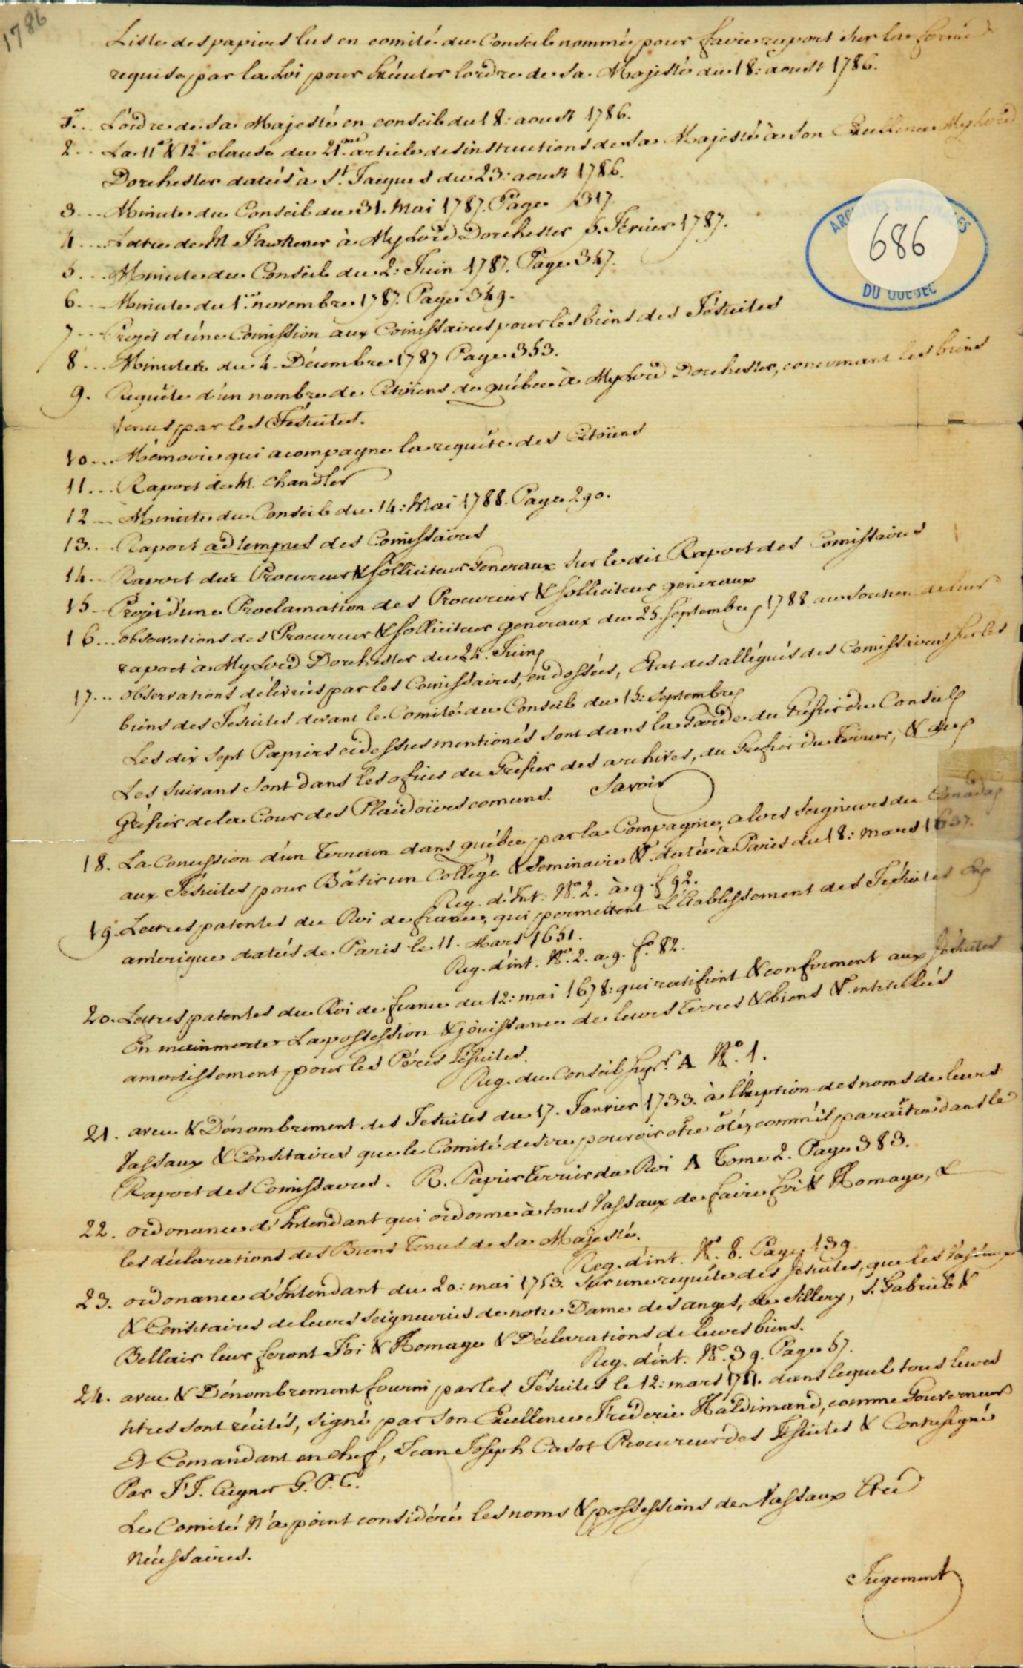 1786
Liste des papiers lus en comité du Conseil nommé pour faire raport sur la forme
requise par la Loi pour Exécuter lordre de Sa Majesté du 18: aoust 1786.
1.er L'ordre de Sa Majesté en conseil du 18: aoust 1786.
2... La 11e & 12e clause du 21.me article des instructions de Sa Majesté à Son Excellence Mylord
Dorchester datées à St Jacques du 23: aoust 1786.
3... Minute du Conseil du 31. Mai 1787. Page 317.
4... Lettre de M. Fawkener à Mylord Dorchester 5. Février 1787.
5... Minute du Conseil du 2: Juin 1787. Page 347.
6... Minute du 1.er novembre 1787. Page 349.
7... Projet d'une Comission aux Comissaires pour les biens des Jésuites
8... Minute du 4. Décembre 1787 Page 353.
9. Requête d'un nombre de Citoïens de québec à Mylord Dorchester, concernant les biens
tenus par les Jésuites.
10... Mémoire qui acompagne la requête des Citoïens
11... Raport de M. Chandler
12... Minute du Conseil du 14: Mai 1788. Page 290.
13... Raport ad tempus des Comissaires
14... Raport des Procureur & Solliciteur Generaux sur le dit Raport des Comissaires
15... Projet d'une Proclamation des Procureur & Solliciteur generaux
16... observations des Procureur & Solliciteur generaux du 25. Septembre 1788 au soutien de leur
raport à Mylord Dorchester du 24. Juin
17... observations délivrées par les Comissaires, endossées, Etat des allégués des Comissaires sur les
biens des Jesuites devant le Comité du Conseil du 15: Septembre
Les dix sept Papiers cidessus mentionés sont dans la Garde du Gréfier du Conseil
Les Suivans sont dans les offices du Gréfier des archives, du Gréfier du Terrier, & du
Gréfier de la Cour des Plaidoïers comuns. Savoir
18. La Concession d'un terrein dans québec par la Compagnie, alors Seigneurs du Canada
aux Jésuites pour Bâtir un Collége & Seminaire &.c datée à Paris du 18: mars 1637.
Reg. d'Int. No 2. à 9. fo 92.
19. Lettres patentes du Roi de france, qui permettent L'Etablissement des Jésuites En
amerique datées de Paris le 11. Mars 1651.
Reg. d'int. No. 2. a 9. fo. 82.
20. Lettres patentes du Roi de france du 12: mai 1678: qui ratifient & confirment aux Jésuites
En mainmorte La possession & jouissance de leurs terres & biens & intitulées
amortissement pour les Péres Jésuites.
Reg. du Conseil Supr. A No. 1.
21. aveu & Dénombrement des Jesuites du 17. Janvier 1733. à l'Exeption des noms de leurs
Vassaux & Censitaires que le Comité desire pouvoir etre ôtés, comme il paraitra dans le
Raport des Comissaires. R. Papier Terrier du Roi A Tome 2. Page 383.
22. ordonance d'Intendant qui ordonne à tous Vassaux de faire foi & Homage, &
les déclarations des Biens tenus de Sa Majesté.
Reg. d'int. No. 8. Page 139.
23. ordonance d'Intendant du 20: mai 1753. sur une requête des Jésuites, que les Vassaux
& Censitaires de leurs Seigneuries de notre Dame des anges, de Sillery, St. Gabriel &
Bellair leur feront Foi & Homage & Déclarations de leurs biens.
Reg. d'int. No. 39. Page 57.
24. aveu & Dénombrement fourni par les Jésuites le 12: mars 1781. dans lequel tous leurs
titres sont récités, signé par Son Excellence Frederic Haldimand, comme Gouverneur
Et Comandant en chef, Jean Joseph Casot Procureur des Jésuites & Contresigné
Par F. J. Cugnet G. P. T.
Le Comité N'a point considéré les noms & possessions des Vassaux Etre
Nécessaires.
Jugement
ARCHIVES NATIONALES
686
DU QUÉBEC